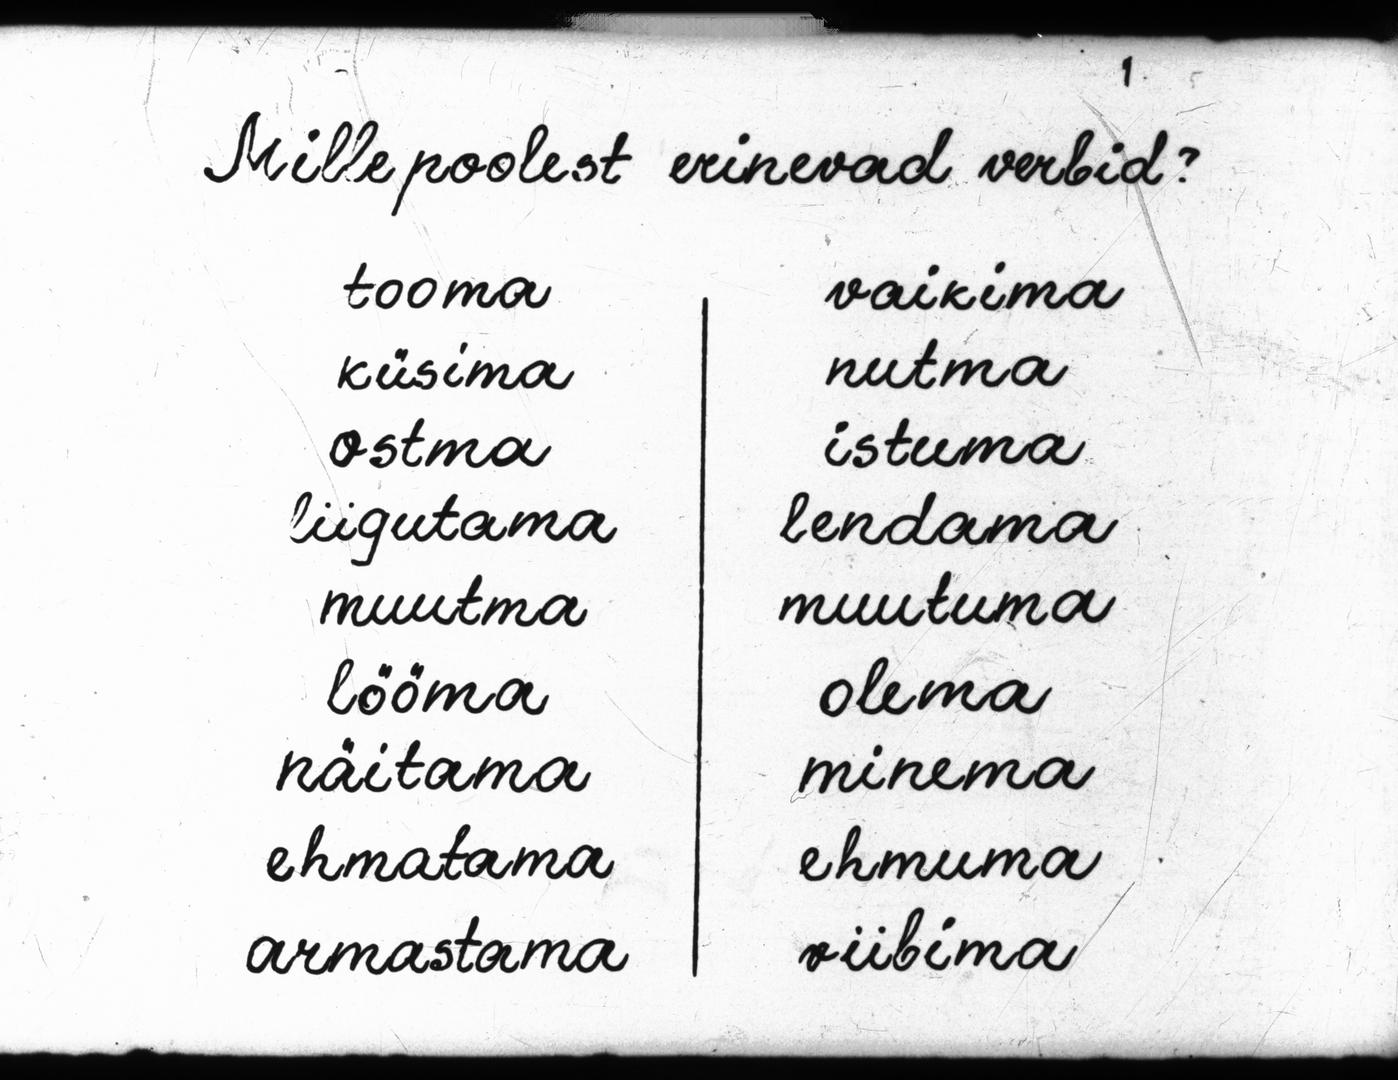 1.
Mille poolest erinevad verbid?
tooma
küsima
ostma
liigutama
muutma
lööma
näitama
ehmatama
armastama
vaikima
nutma
istuma
lendama
muutuma
olema
minema
ehmuma
viibima